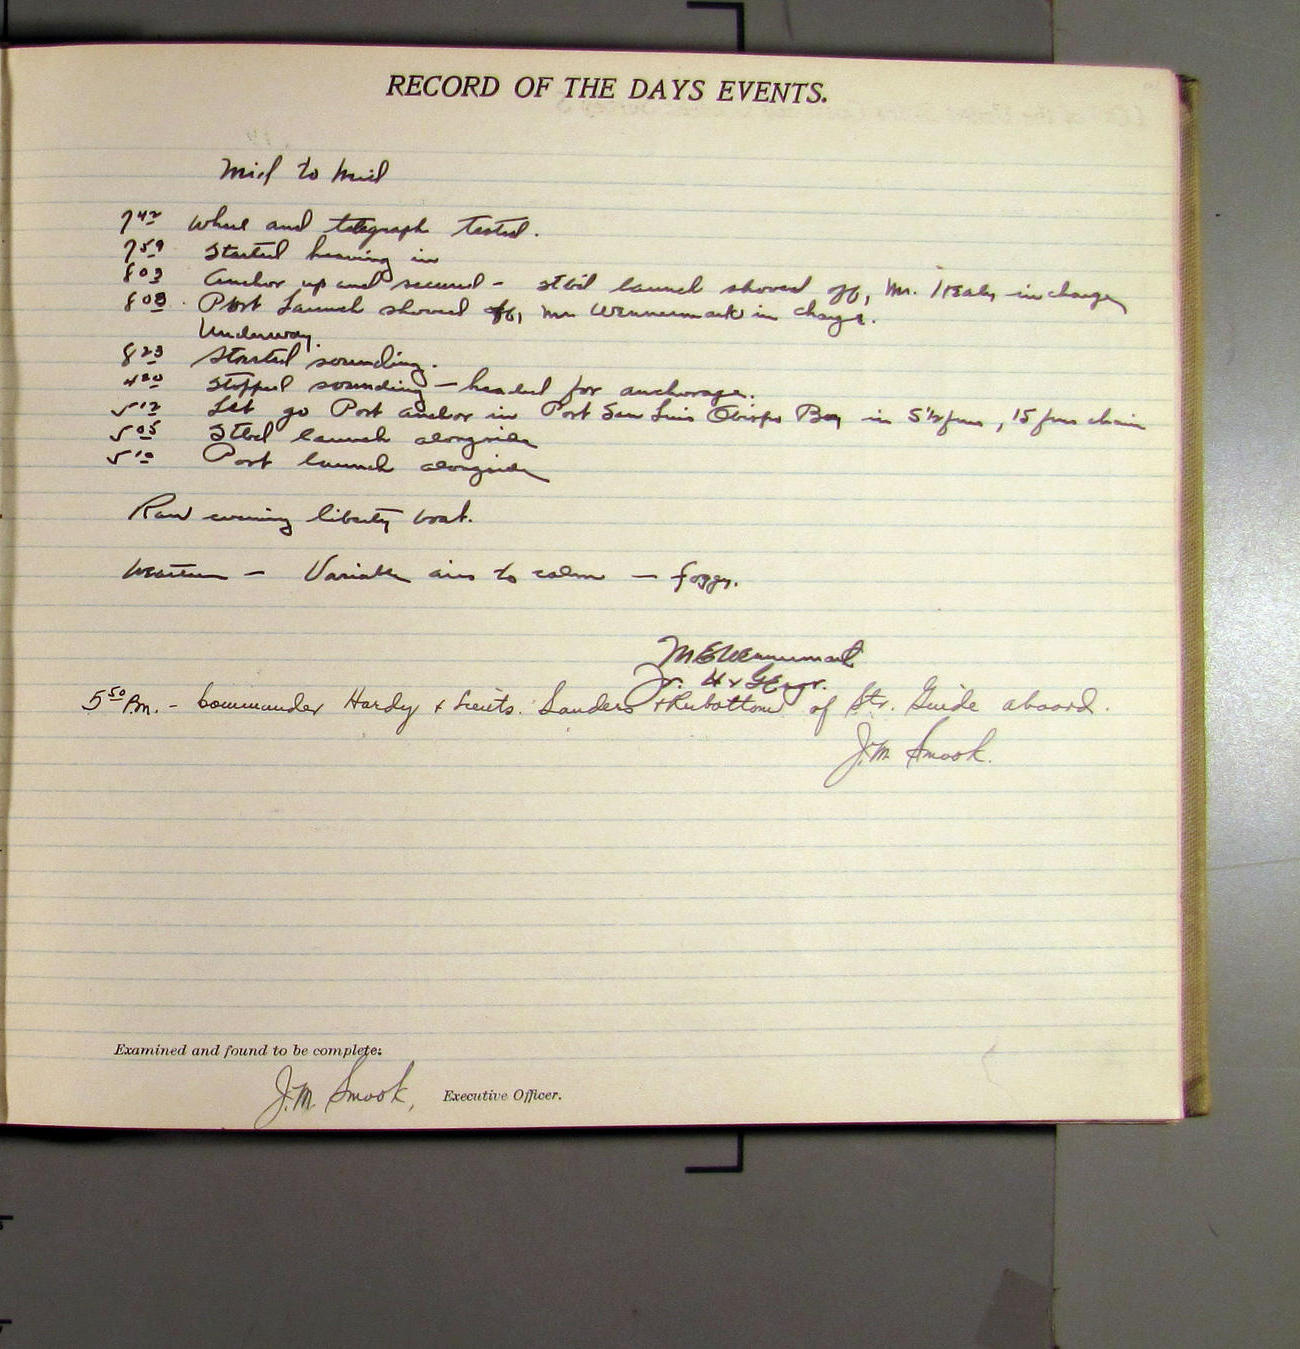 RECORD OF THE DAYS EVENTS.
Mid to Mid
7 42 Wheel and telegraph tested.
7 59 Started heaving in
8 03 Anchor up and secured - stbd launch shoved off, Mr. in charge
8 08 Port Launch shoved off, Mr Wennermark in charge.
Underway.
8 23 Started sounding.
4 20 Stopped sounding — headed for anchorage.
5 12 Let go Port anchor in Port San Luis Obispo Bay in 5½ fms, 15 fms chain
5 05 Stbd launch alongside
5 10 Port launch alongside
Ran evening liberty boat.
Weather — Variable airs to calm — foggy.
M E Wennermark
Jr. H & G Engr.
5 50 P.m. - Commander Hardy & Lieuts. Sanders & Rubottom of Str. Guide aboard.
J.M. Smook.
Examined and found to be complete:
J.M. Smook, Executive Officer.